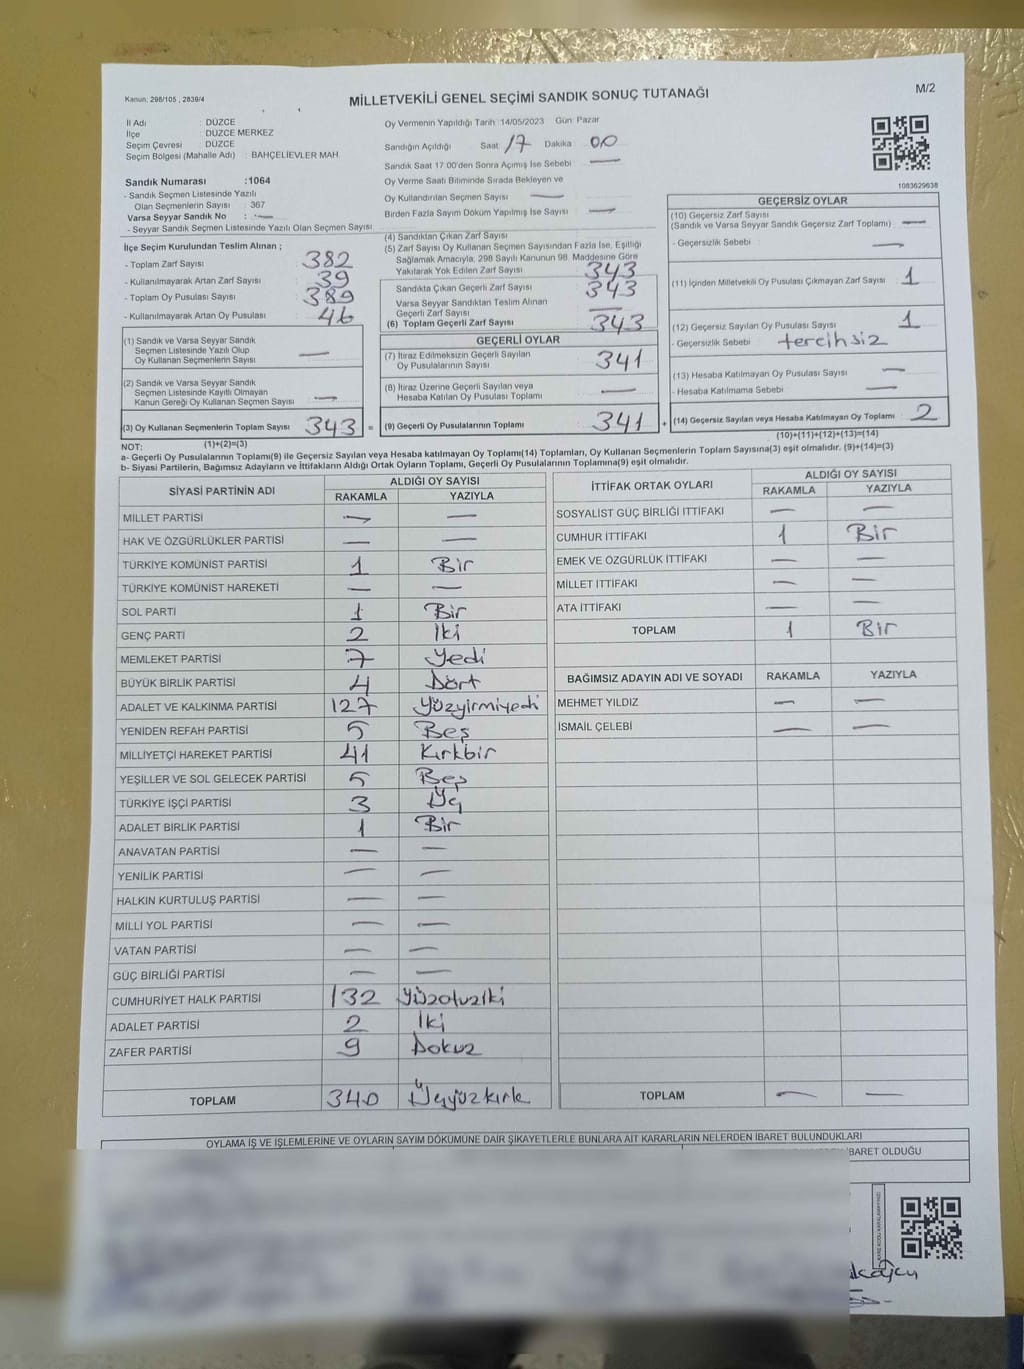 Kanun: 298/105 , 2839/4
MİLLETVEKİLİ GENEL SEÇİMİ SANDIK SONUÇ TUTANAĞI
M/2
İl Adı : DÜZCE
İlçe : DÜZCE MERKEZ
Seçim Çevresi : DÜZCE
Seçim Bölgesi (Mahalle Adı) : BAHÇELİEVLER MAH
Sandık Numarası :1064
- Sandık Seçmen Listesinde Yazılı
Olan Seçmenlerin Sayısı : 367
Varsa Seyyar Sandık No : —
- Seyyar Sandık Seçmen Listesinde Yazılı Olan Seçmen Sayısı
Oy Vermenin Yapıldığı Tarih :14/05/2023 Gün: Pazar
Sandığın Açıldığı Saat 17 Dakika 00
Sandık Saat 17:00'den Sonra Açımış İse Sebebi —
Oy Verme Saati Bitiminde Sırada Bekleyen ve
Oy Kullandırılan Seçmen Sayısı —
Birden Fazla Sayım Döküm Yapılmış İse Sayısı —
1083629638
İlçe Seçim Kurulundan Teslim Alınan ;
- Toplam Zarf Sayısı 382
- Kullanılmayarak Artan Zarf Sayısı 39
- Toplam Oy Pusulası Sayısı 389
- Kullanılmayarak Artan Oy Pusulası 46
(1) Sandık ve Varsa Seyyar Sandık
Seçmen Listesinde Yazılı Olup
Oy Kullanan Seçmenlerin Sayısı —
(2) Sandık ve Varsa Seyyar Sandık
Seçmen Listesinde Kayıtlı Olmayan
Kanun Gereği Oy Kullanan Seçmen Sayısı —
(3) Oy Kullanan Seçmenlerin Toplam Sayısı 343 =
(4) Sandıktan Çıkan Zarf Sayısı
(5) Zarf Sayısı Oy Kullanan Seçmen Sayısından Fazla İse, Eşitliği
Sağlamak Amacıyla, 298 Sayılı Kanunun 98. Maddesine Göre
Yakılarak Yok Edilen Zarf Sayısı 343
Sandıkta Çıkan Geçerli Zarf Sayısı 343
Varsa Seyyar Sandıktan Teslim Alınan
Geçerli Zarf Sayısı —
(6) Toplam Geçerli Zarf Sayısı 343
GEÇERLİ OYLAR
(7) İtiraz Edilmeksizin Geçerli Sayılan
Oy Pusulalarının Sayısı 341
(8) İtiraz Üzerine Geçerli Sayılan veya
Hesaba Katılan Oy Pusulası Toplamı —
(9) Geçerli Oy Pusulalarının Toplamı 341 +
GEÇERSİZ OYLAR
(10) Geçersiz Zarf Sayısı
(Sandık ve Varsa Seyyar Sandık Geçersiz Zarf Toplamı) —
- Geçersizlik Sebebi —
(11) İçinden Milletvekili Oy Pusulası Çıkmayan Zarf Sayısı 1
(12) Geçersiz Sayılan Oy Pusulası Sayısı 1
- Geçersizlik Sebebi tercihsiz
(13) Hesaba Katılmayan Oy Pusulası Sayısı —
- Hesaba Katılmama Sebebi —
(14) Geçersiz Sayılan veya Hesaba Katılmayan Oy Toplamı 2
NOT: (1)+(2)=(3)
(10)+(11)+(12)+(13)=(14)
a- Geçerli Oy Pusulalarının Toplamı(9) ile Geçersiz Sayılan veya Hesaba katılmayan Oy Toplamı(14) Toplamları, Oy Kullanan Seçmenlerin Toplam Sayısına(3) eşit olmalıdır. (9)+(14)=(3)
b- Siyasi Partilerin, Bağımsız Adayların ve İttifakların Aldığı Ortak Oyların Toplamı, Geçerli Oy Pusulalarının Toplamına(9) eşit olmalıdır.
SİYASİ PARTİNİN ADI ALDIĞI OY SAYISI
RAKAMLA YAZIYLA
MİLLET PARTİSİ — —
HAK VE ÖZGÜRLÜKLER PARTİSİ — —
TÜRKİYE KOMÜNİST PARTİSİ 1 Bir
TÜRKİYE KOMÜNİST HAREKETİ — —
SOL PARTİ 1 Bir
GENÇ PARTİ 2 İki
MEMLEKET PARTİSİ 7 Yedi
BÜYÜK BİRLİK PARTİSİ 4 Dört
ADALET VE KALKINMA PARTİSİ 127 Yüzyirmiyedi
YENİDEN REFAH PARTİSİ 5 Beş
MİLLİYETÇİ HAREKET PARTİSİ 41 Kırkbir
YEŞİLLER VE SOL GELECEK PARTİSİ 5 Beş
TÜRKİYE İŞÇİ PARTİSİ 3 Üç
ADALET BİRLİK PARTİSİ 1 Bir
ANAVATAN PARTİSİ — —
YENİLİK PARTİSİ — —
HALKIN KURTULUŞ PARTİSİ — —
MİLLİ YOL PARTİSİ — —
VATAN PARTİSİ — —
GÜÇ BİRLİĞİ PARTİSİ — —
CUMHURİYET HALK PARTİSİ 132 Yüzotuziki
ADALET PARTİSİ 2 İki
ZAFER PARTİSİ 9 Dokuz
TOPLAM 340 Üçyüzkırk
İTTİFAK ORTAK OYLARI ALDIĞI OY SAYISI
RAKAMLA YAZIYLA
SOSYALİST GÜÇ BİRLİĞİ İTTİFAKI — —
CUMHUR İTTİFAKI 1 Bir
EMEK VE ÖZGÜRLÜK İTTİFAKI — —
MİLLET İTTİFAKI — —
ATA İTTİFAKI — —
TOPLAM 1 Bir
BAĞIMSIZ ADAYIN ADI VE SOYADI RAKAMLA YAZIYLA
MEHMET YILDIZ — —
İSMAİL ÇELEBİ — —
TOPLAM — —
OYLAMA İŞ VE İŞLEMLERİNE VE OYLARIN SAYIM DÖKÜMÜNE DAİR ŞİKAYETLERLE BUNLARA AİT KARARLARIN NELERDEN İBARET BULUNDUKLARI
İBARET OLDUĞU